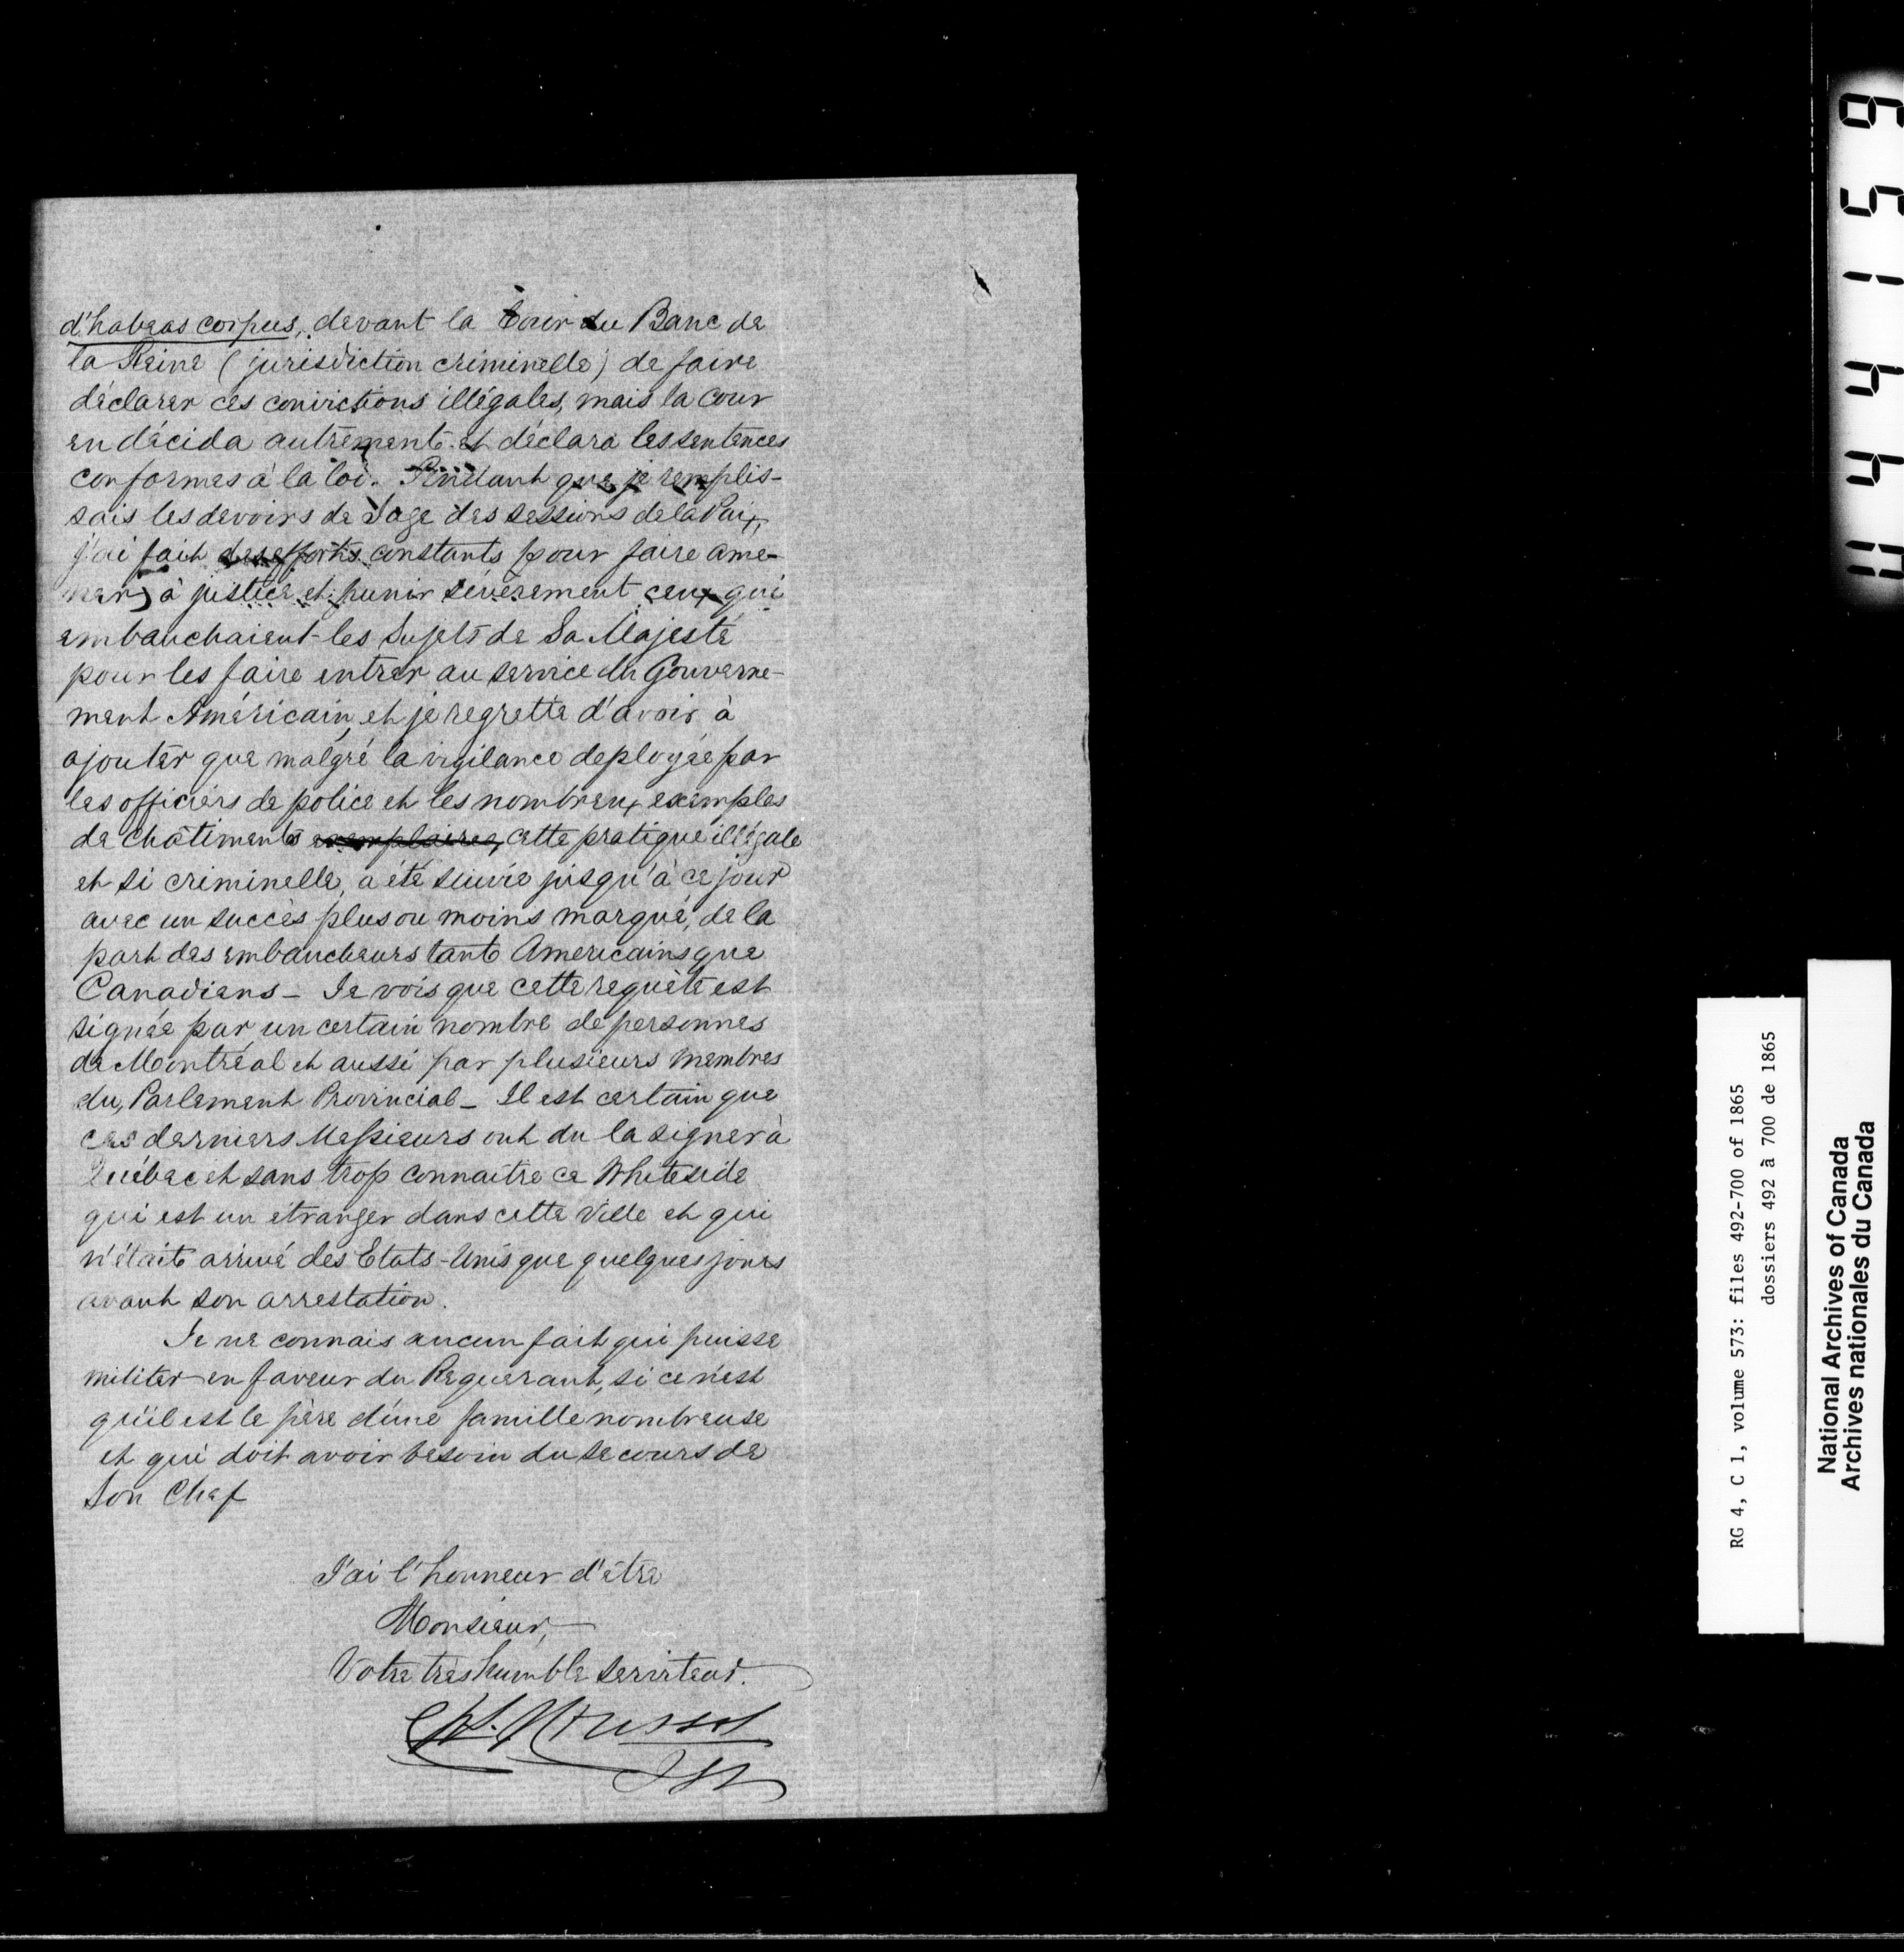 d'habeas corpus, devant la Cour du Banc de
la Reine (jurisdiction criminelle) de faire
déclarer ces convictions illégales, mais la Cour
en décida autrement et déclara les sentences
conformes à la loi. Pendant que je remplis-
sais les devoirs de Juge des Sessions de la Paix,
j'ai fait des efforts constants pour faire ame-
ner à justice et punir sévèrement ceux qui
embauchaient les Sujets de Sa Majesté
pour les faire entrer au service du Gouverne-
ment Américain, et je regrette d'avoir à
ajouter que malgré la vigilance deployée par
les officiers de police et les nombreux exemples
de châtiments exemplaires, cette pratique illégale
et si criminelle, a été suivie jusqu'à ce jour
avec un succès plus ou moins marqué, de la
part des embaucheurs tant Americains que
Canadiens - Je vois que cette requête est
signée par un certain nombre de personnes
de Montréal et aussi par plusieurs membres
du Parlement Provincial - Il est certain que
ces derniers Messieurs ont du la signer à
Québec et sans trop connaitre ce Whiteside
qui est un étranger dans cette Ville et qui
n'était arrivé des Etats-Unis que quelques jours
avant son arrestation.
Je ne connais aucun fait qui puisse
militer en faveur du Requerant, si ce n'est
qu'il est le père d'une famille nombreuse
et qui doit avoir besoin du secours de
Son Chef
J'ai l'honneur d'être
Monsieur,
Votre très humble serviteur.
JSP
RG 4, C 1, volume 573: files 492-700 of 1865
dossiers 492 à 700 de 1865
National Archives of Canada
Archives nationales du Canada